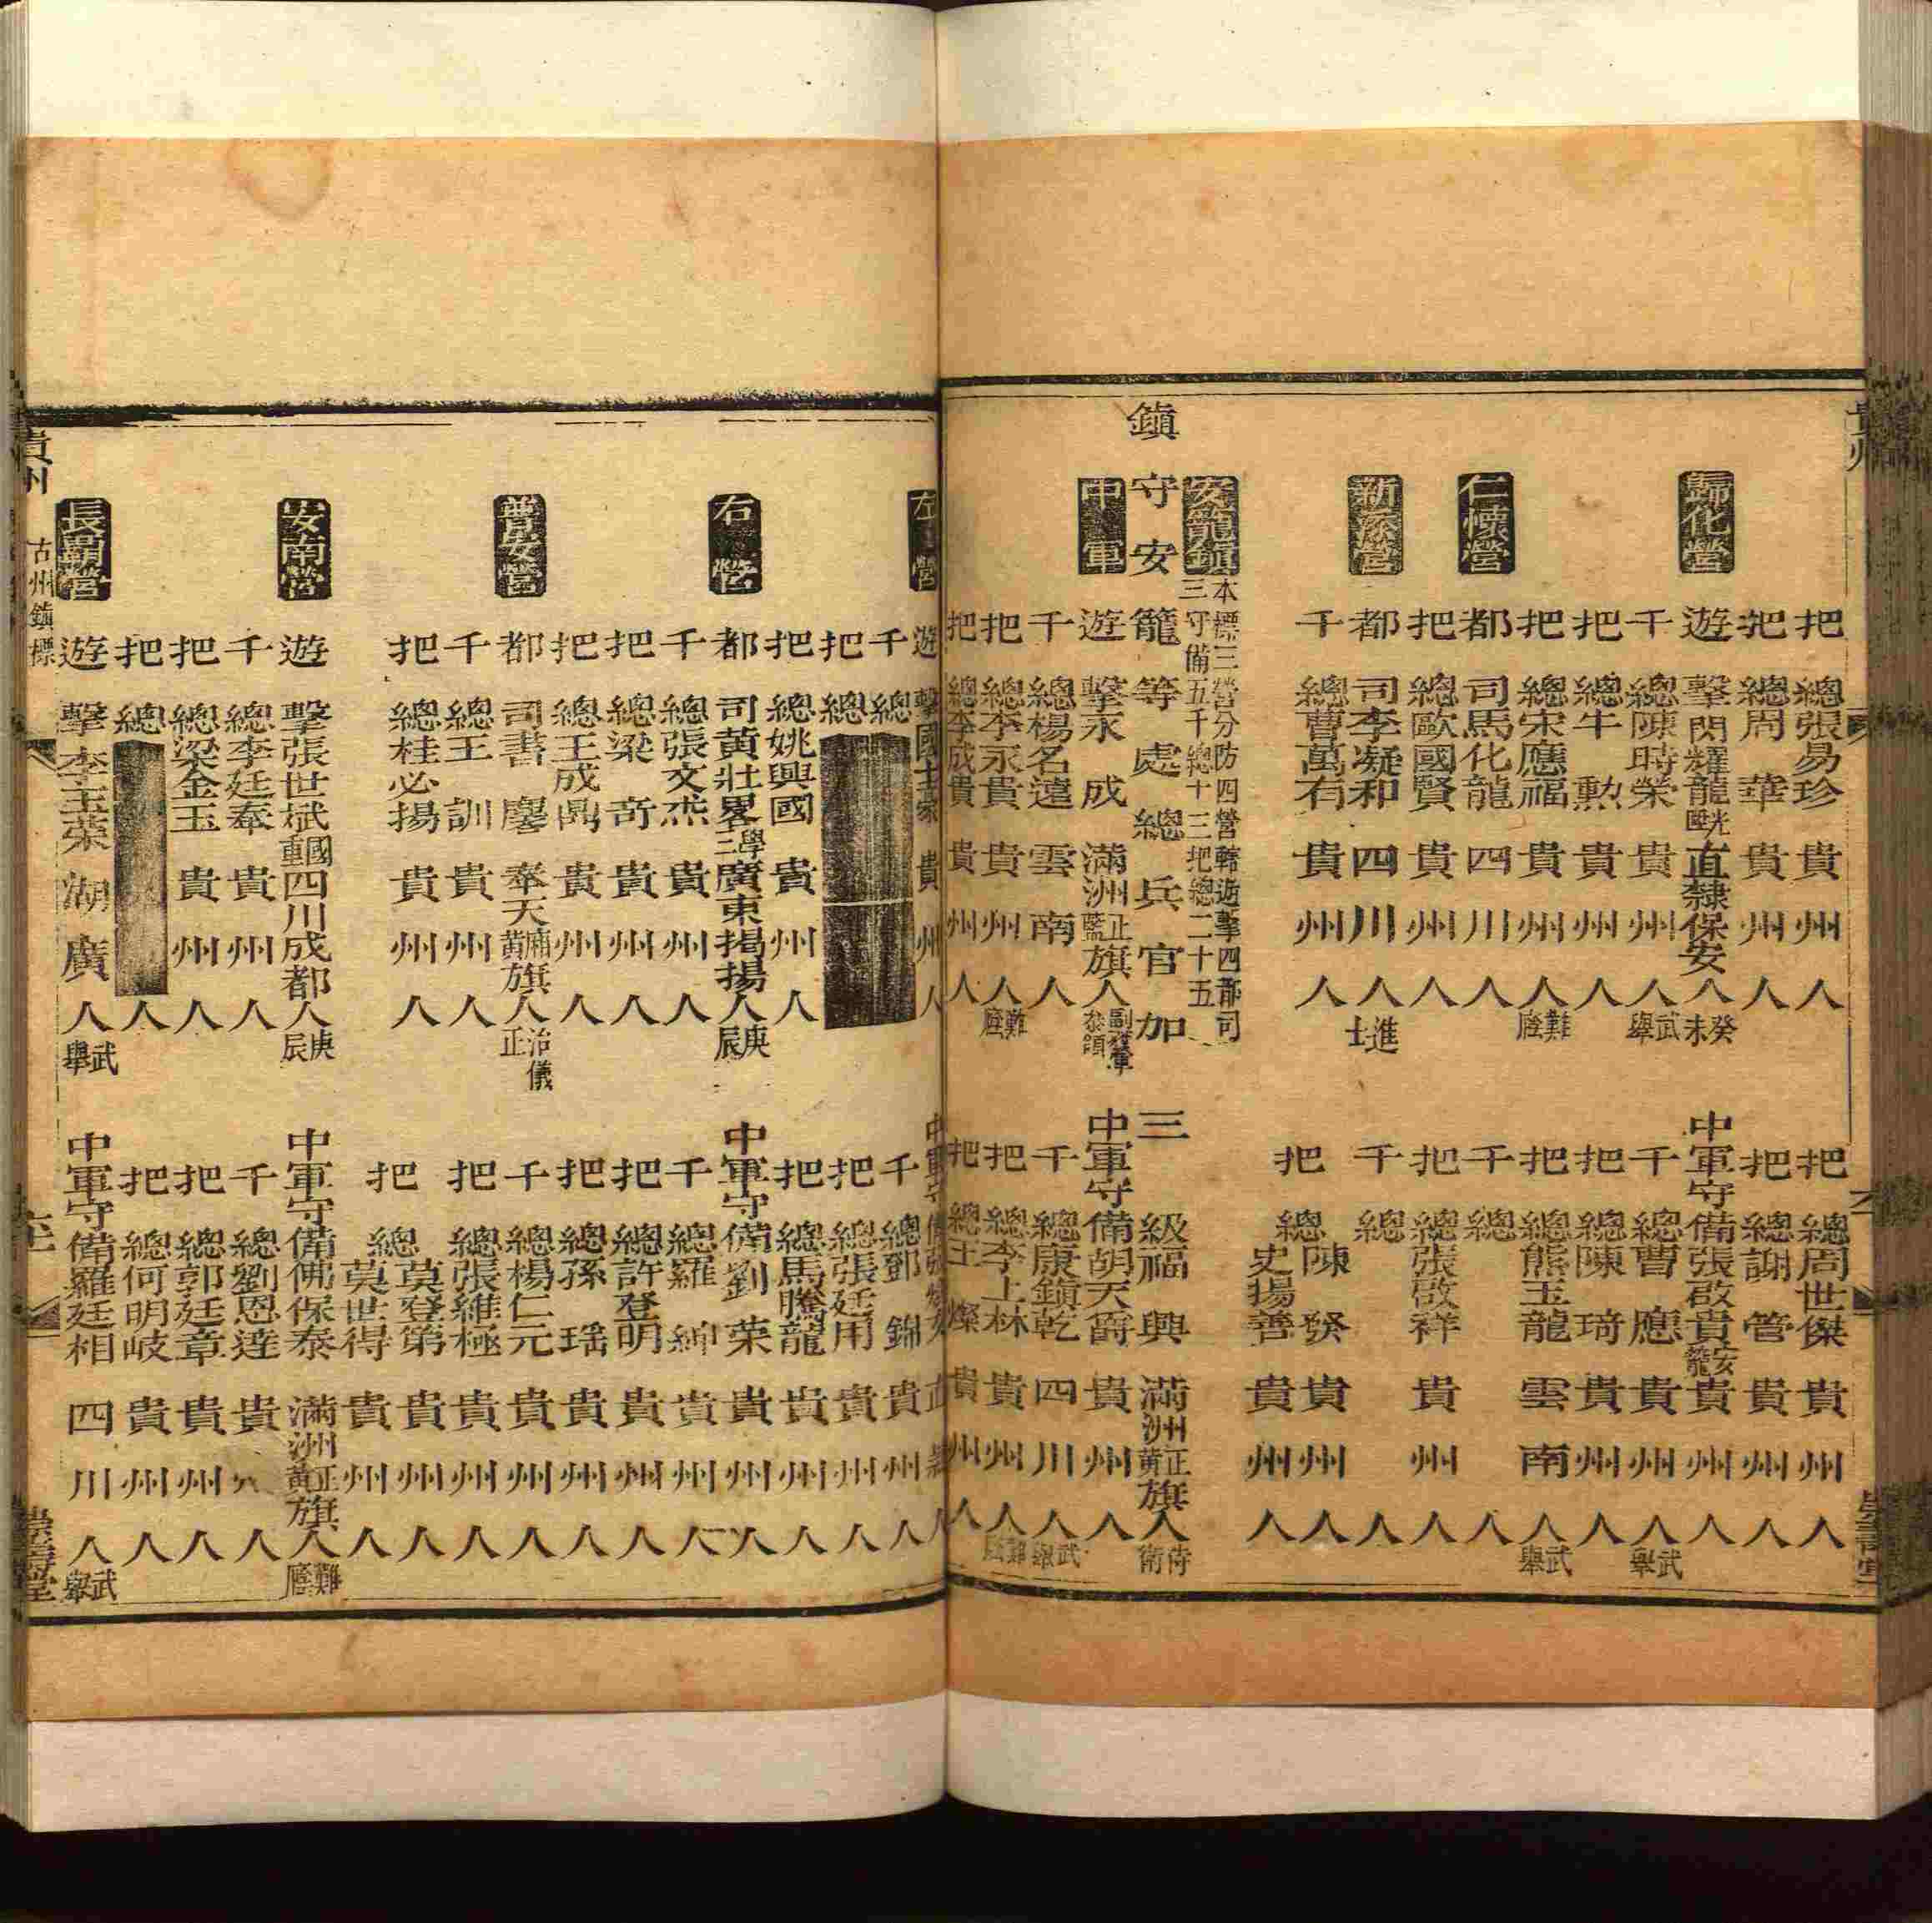 貴州
把總張易珍貴州人 把總周世傑貴州人
把總周華貴州人 把總謝管貴州人
歸化營 遊擊閃耀龍直隸保安人癸未 中軍守備張啟貴安籠貴州人
千總陳時榮貴州人武舉 千總曹應貴州人武舉
把總牛勲貴州人 把總陳琦貴州人
把總宋應福貴州人難廕 把總熊玉龍雲南人武舉
仁懷營 都司馬化龍四川人 千總人
把總歐國賢貴州人 把總張啟祥貴州人
新添營 都司李凝和四川人進士 千總人
千總曹萬有貴州人 把總陳發貴州人
史揚善貴州人
安籠鎮 本標三營分防四營轄遊擊四都司三守備五千總十三把總二十五
鎮守安籠等處總兵官加三級福興滿洲正黃旗人侍衛
中軍 遊擊永成滿洲正藍旗人副護軍參領 中軍守備胡天爵貴州人
千總楊名遠雲南人 千總康鎮乾四川人武舉
把總李永貴貴州人難廕 把總李上林貴州人難廕
把總李成貴貴州人 把總王燦貴州人
左營 遊擊國士豪貴州人 中軍守備張
千總 千總鄧錦貴州人
把總 把總張廷用貴州人
把總姚興國貴州人 把總馬騰龍貴州人
右營 都司黃壯畧學三廣東揭揚人庚辰 中軍守備劉榮貴州人
千總張文杰貴州人 千總羅紳貴州人
把總梁奇貴州人 把總許登明貴州人
把總王成鼎貴州人 把總孫瑶貴州人
普安營 都司書麐奉天廂黃旗人治儀正 千總楊仁元貴州人
千總王訓貴州人 把總張維極貴州人
把總桂必揚貴州人 把總莫登第貴州人
莫世得貴州人
安南營 遊擊張世斌國重四川成都人庚辰 中軍守備佛保泰滿洲正黃旗人難廕
千總李廷奉貴州人 千總劉恩達貴州人
把總梁金玉貴州人 把總郭廷章貴州人
把總人 把總何明岐貴州人
長壩營 遊擊李玉葉湖廣人武舉 中軍守備羅廷相四川人武舉
貴州 古州鎮標